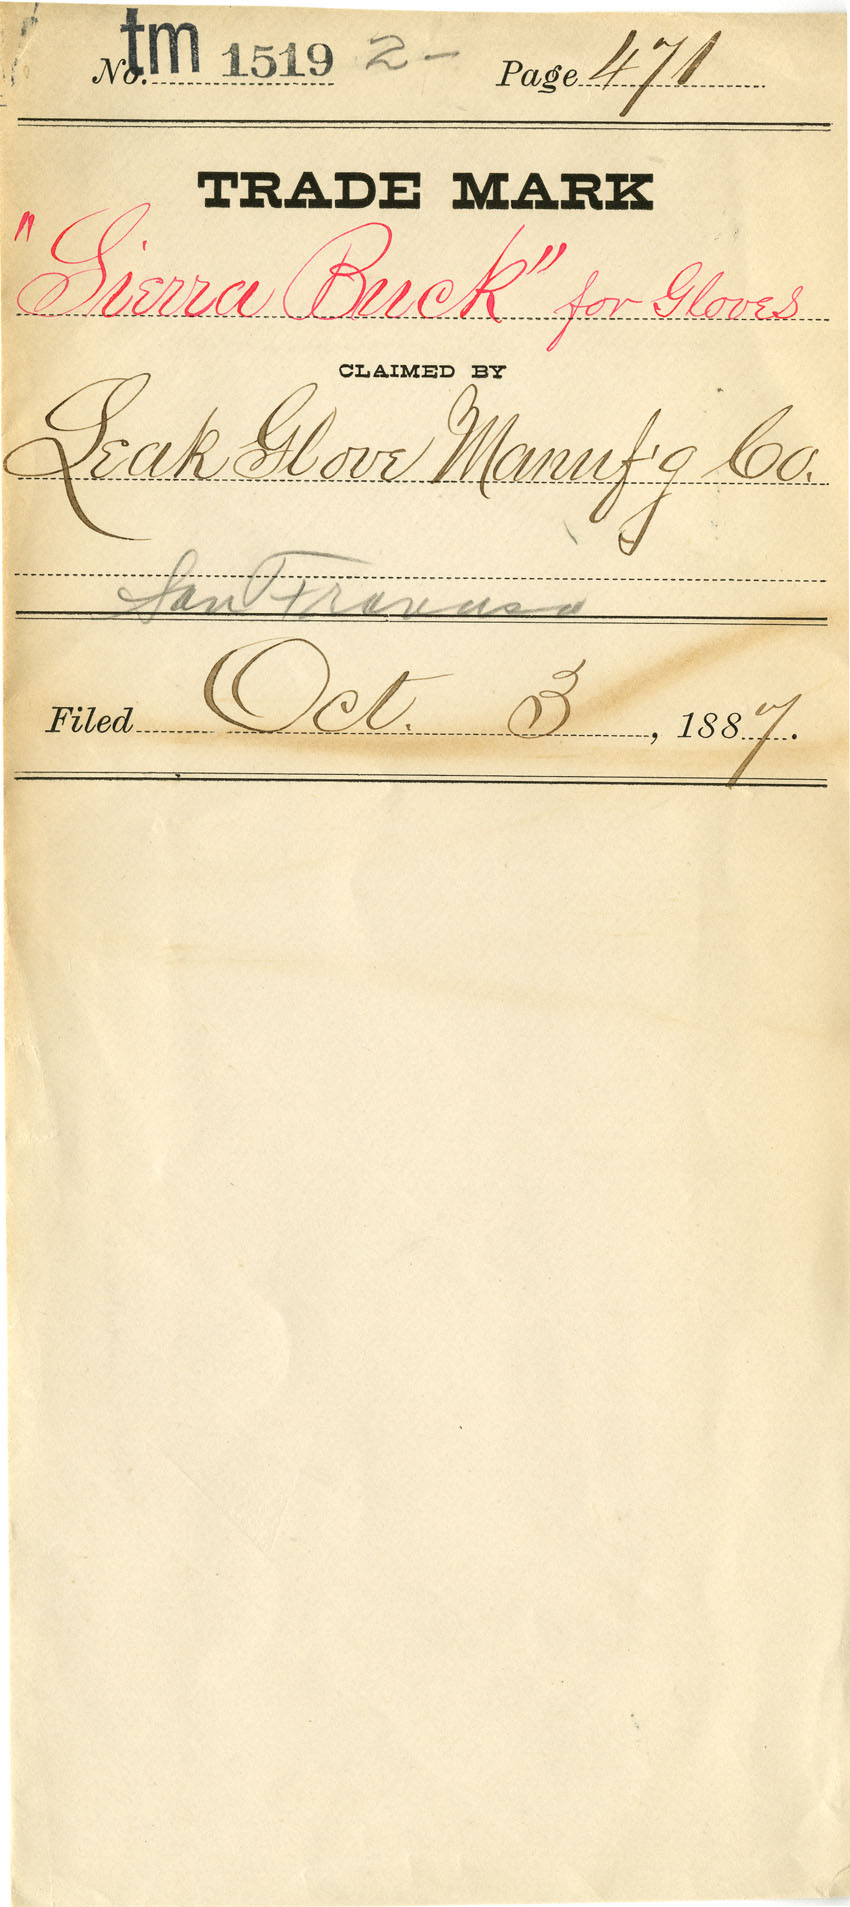 No. tm 1519 2- Page 471
TRADE MARK
"Sierra Buck" for Gloves
CLAIMED BY
Leak Glove Manuf'g Co.
San Francisco
Filed Oct. 3, 1887.